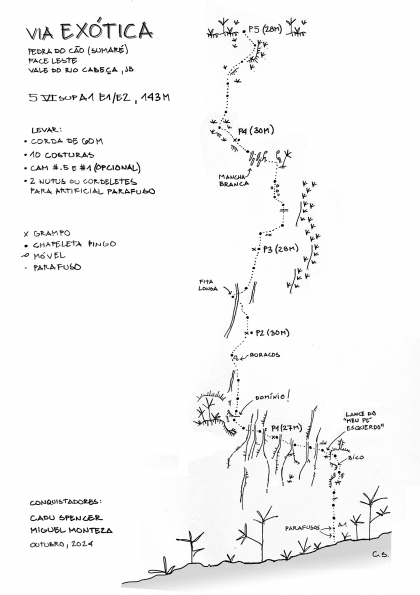 VIA EXÓTICA
PEDRA DO CÃO (SUMARÉ)
FACE LESTE
VALE DO RIO CABEÇA, JB
5 VISUP A1 E1/E2, 143M
LEVAR:
• CORDA DE 60M
• 10 COSTURAS
• CAM #.5 E #1 (OPCIONAL)
• 2 NUTUS OU CORDELETES
PARA ARTIFICIAL PARAFUSO
x GRAMPO
• CHAPELETA PINGO
MÓVEL
· PARAFUSO
P5 (28M)
P4 (30M)
MANCHA
BRANCA
P3 (28M)
FITA
LONGA
P2 (30M)
BURACOS
DOMÍNIO!
LANCE DO
"MEU PÉ
ESQUERDO"
P1 (27M)
BICO
PARAFUSOS
A1
CONQUISTADORES:
CADU SPENCER
MIGUEL MONTEZA
OUTUBRO, 2024
C.S.